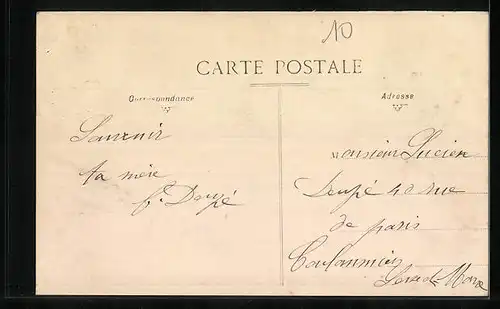 10
CARTE POSTALE
Correspondance
Adresse
Souvenir
ta mère
Monsieur Lucien
40 rue
de paris
Coulommiers
Seine et Marne